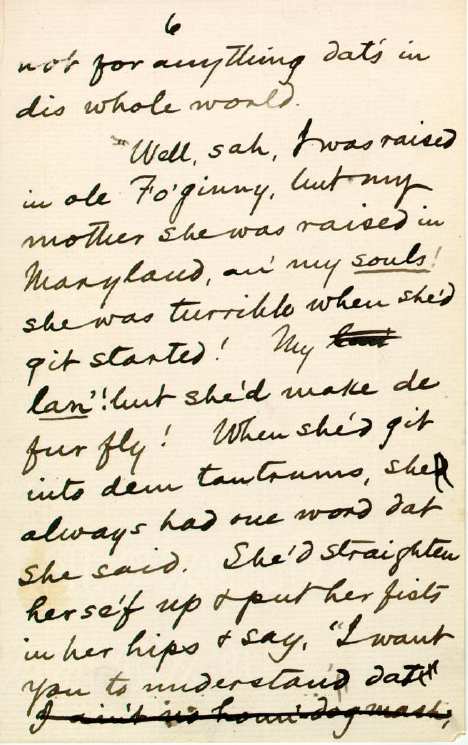 6
not for anything dat's in
dis whole world.
"Well, sah, I was raised
in ole Fo'ginny, but my
mother she was raised in
Maryland, an' my souls!
she was turrible when she'd
git started! My lan'
lan'! but she'd make de
fur fly! When she'd git
into dem tantrums, she
always had one word dat
she said. She'd straighten
herse'f up & put her fists
in her hips & say, "I want
you to understan'd dat
I ain't no hom' dog mash,